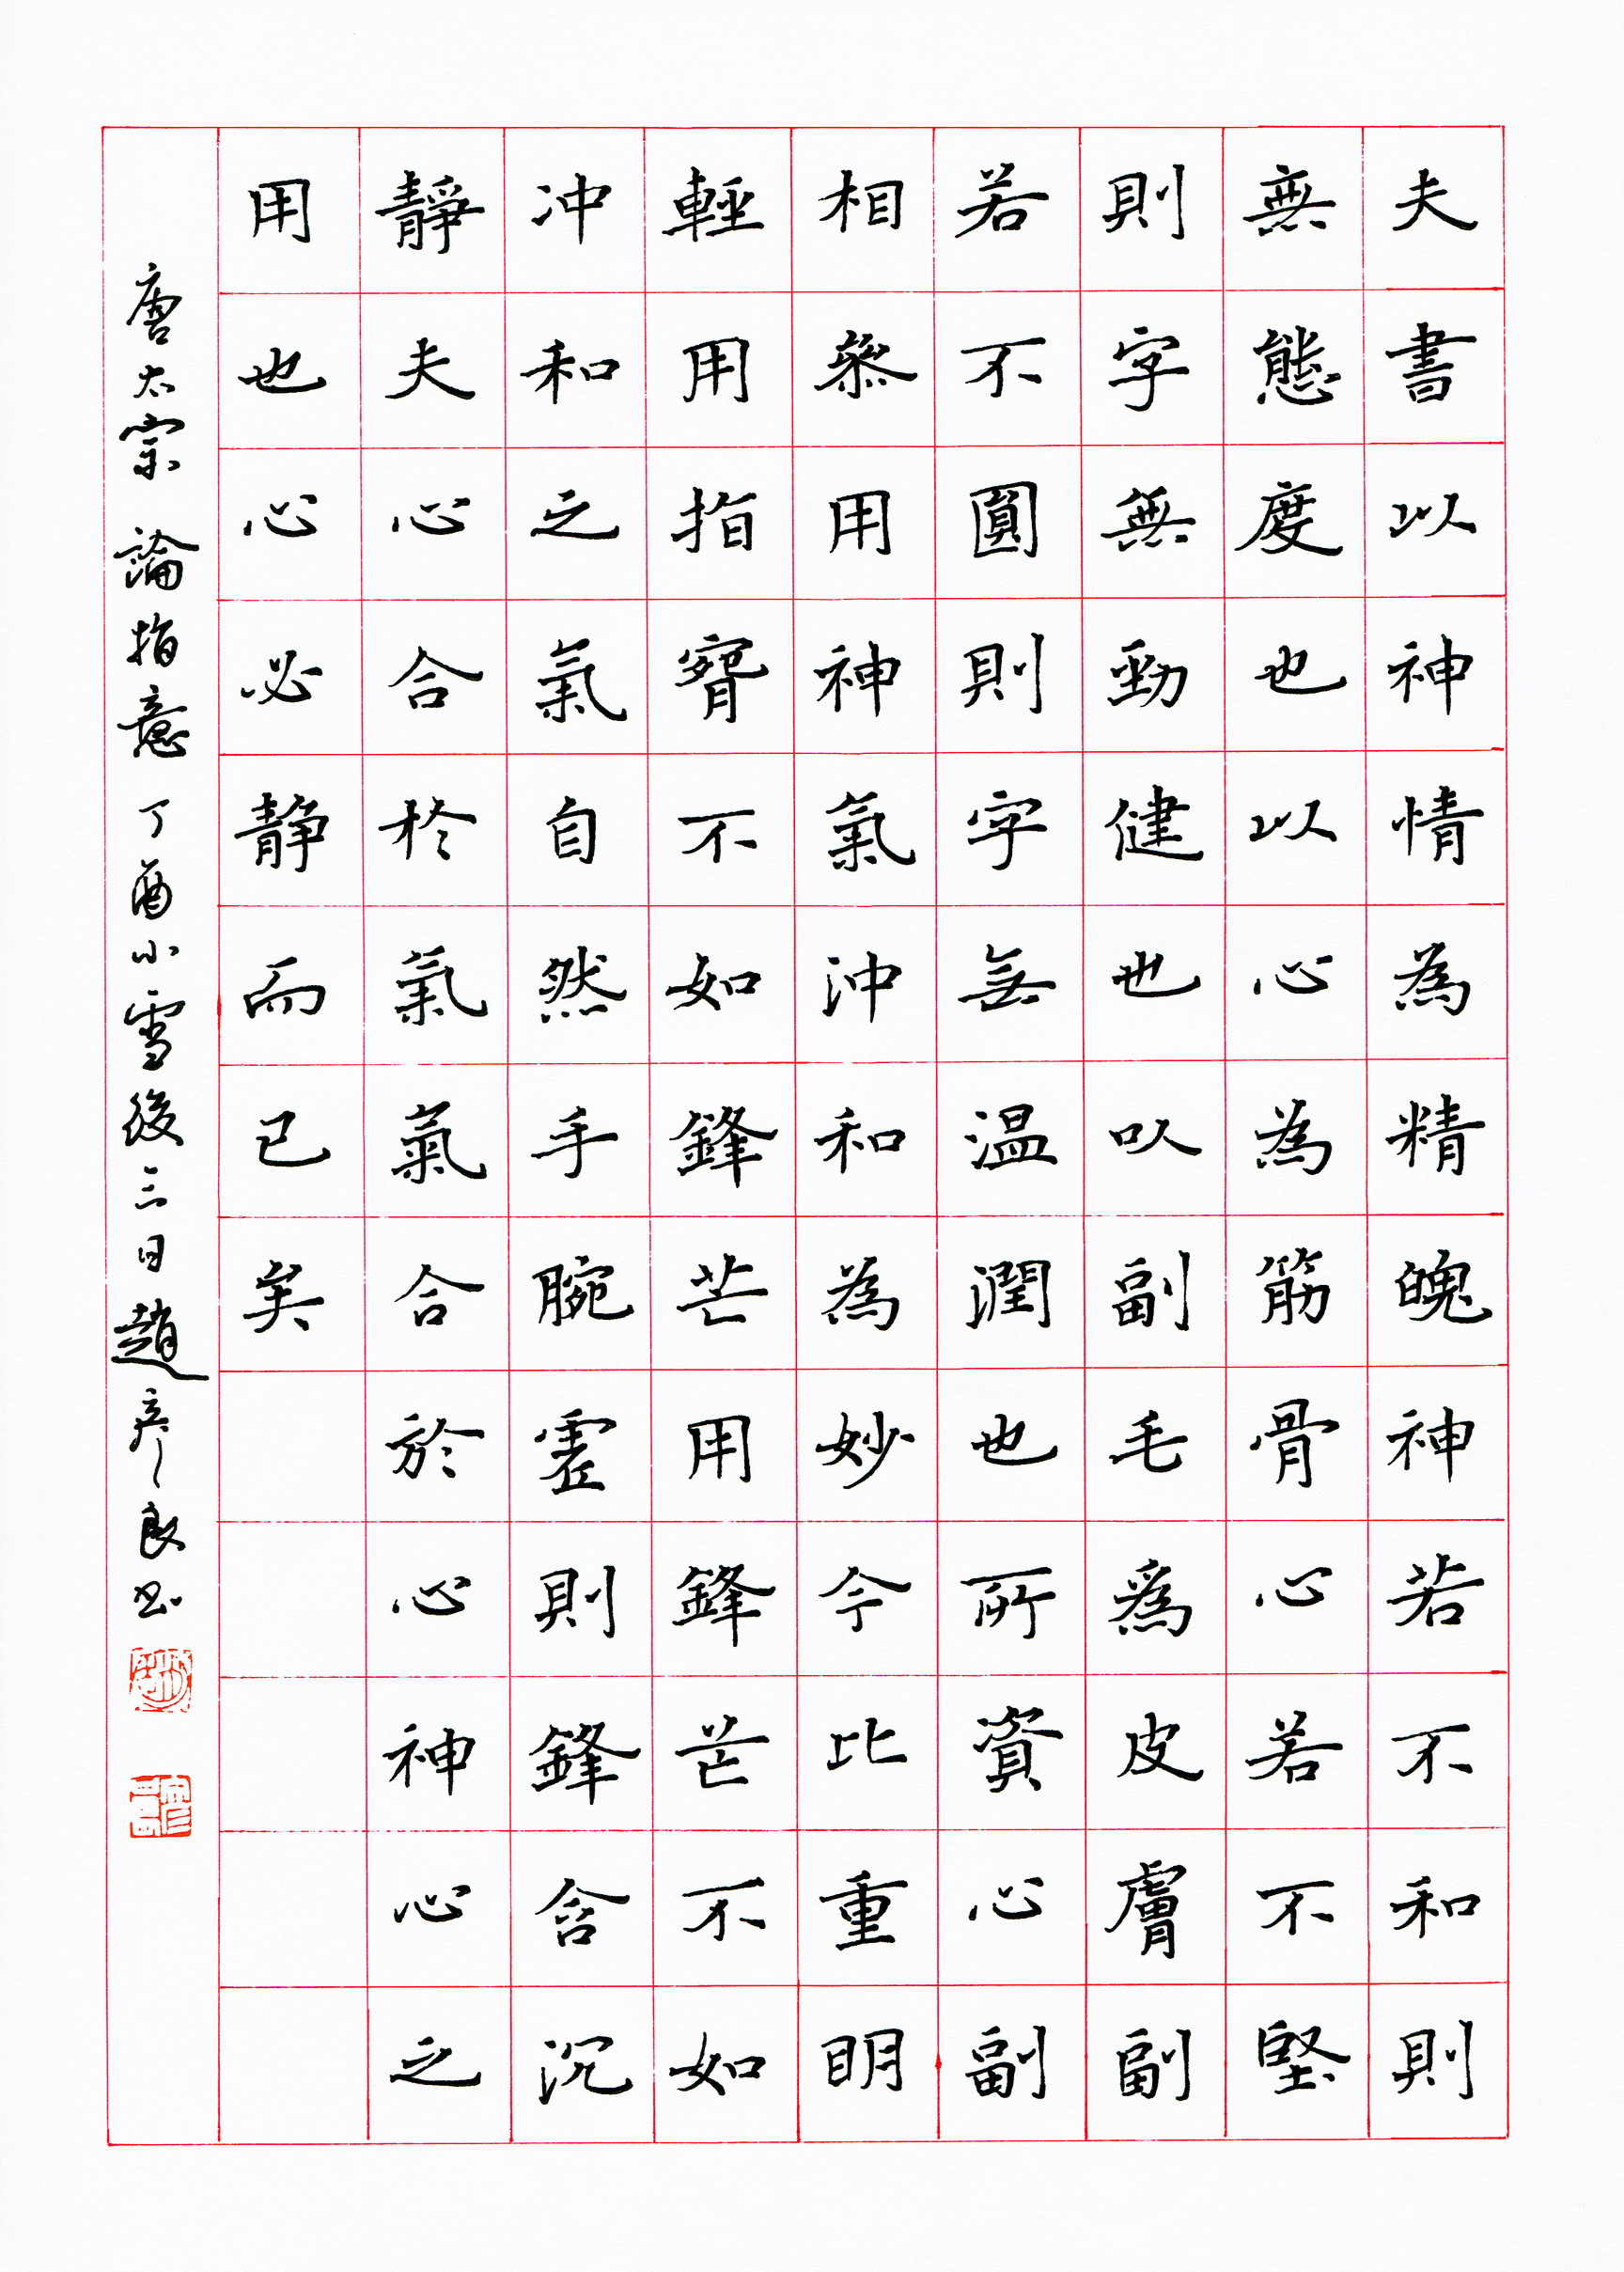 夫書以神情為精魄神若不和則
無態度也以心為筋骨心若不堅
則字無勁健也以副毛為皮膚副
若不圓則字無温潤也所資心副
相參用神氣沖和為妙今比重明
輕用指腕不如鋒芒用鋒芒不如
冲和之氣自然手腕虛則鋒含沉
靜夫心合於氣氣合於心神心之
用也心必静而已矣
唐太宗 論指意 丁酉小雪後三日趙彥良书